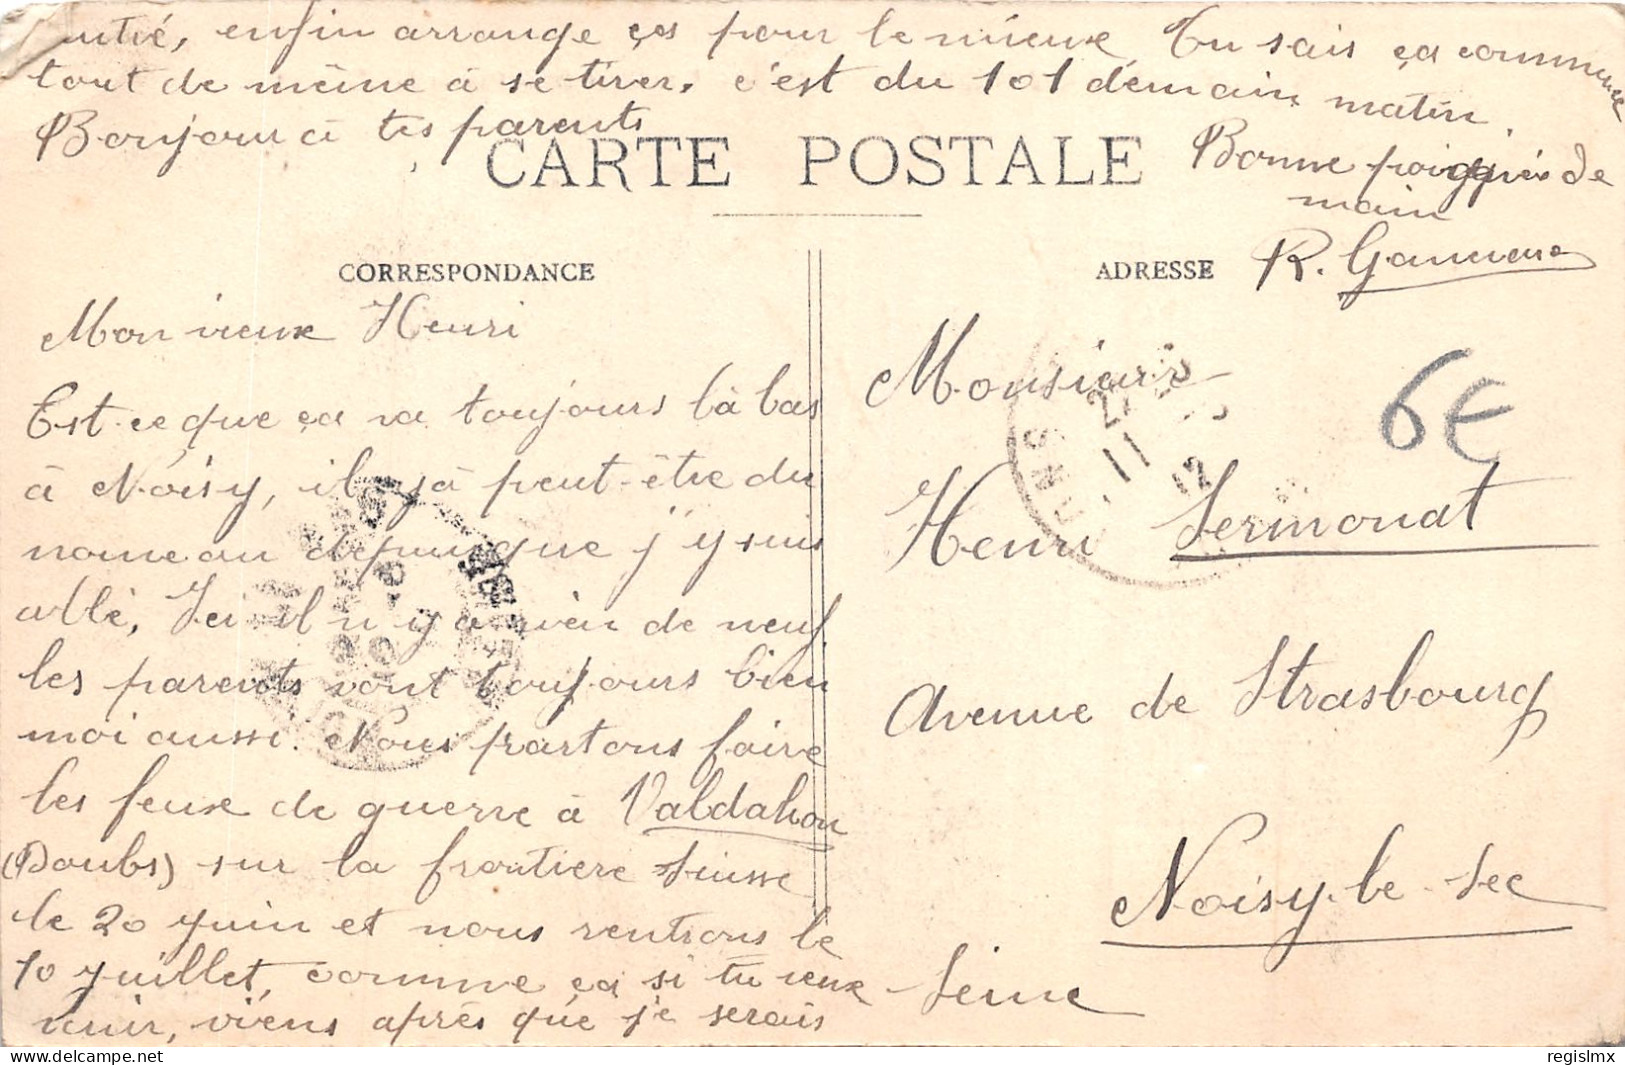 CARTE POSTALE
CORRESPONDANCE
Mon vieux Henri
Est-ce que ça va toujours là bas
à Noisy, il y a peut-être du
nouveau depuis que j'y suis
allé, Ici il n'y a rien de neuf
les parents vont toujours bien
moi aussi. Nous partons faire
les feux de guerre à Valdahon
(Doubs) sur la frontière Suisse
le 20 juin et nous rentrons le
10 juillet, comme ça si tu veux
venir, viens après que je serais
rentré, enfin arrange ça pour le mieux Tu sais ça commence
tout de même à se tirer, c'est du 101 demain matin.
Bonjour à tes parents
Bonne poignée de
main
R.
ADRESSE
Monsieur
Henri Sermonat
Avenue de Strasbourg
Noisy-le-Sec
Seine
6€
21
11
12
regislmx